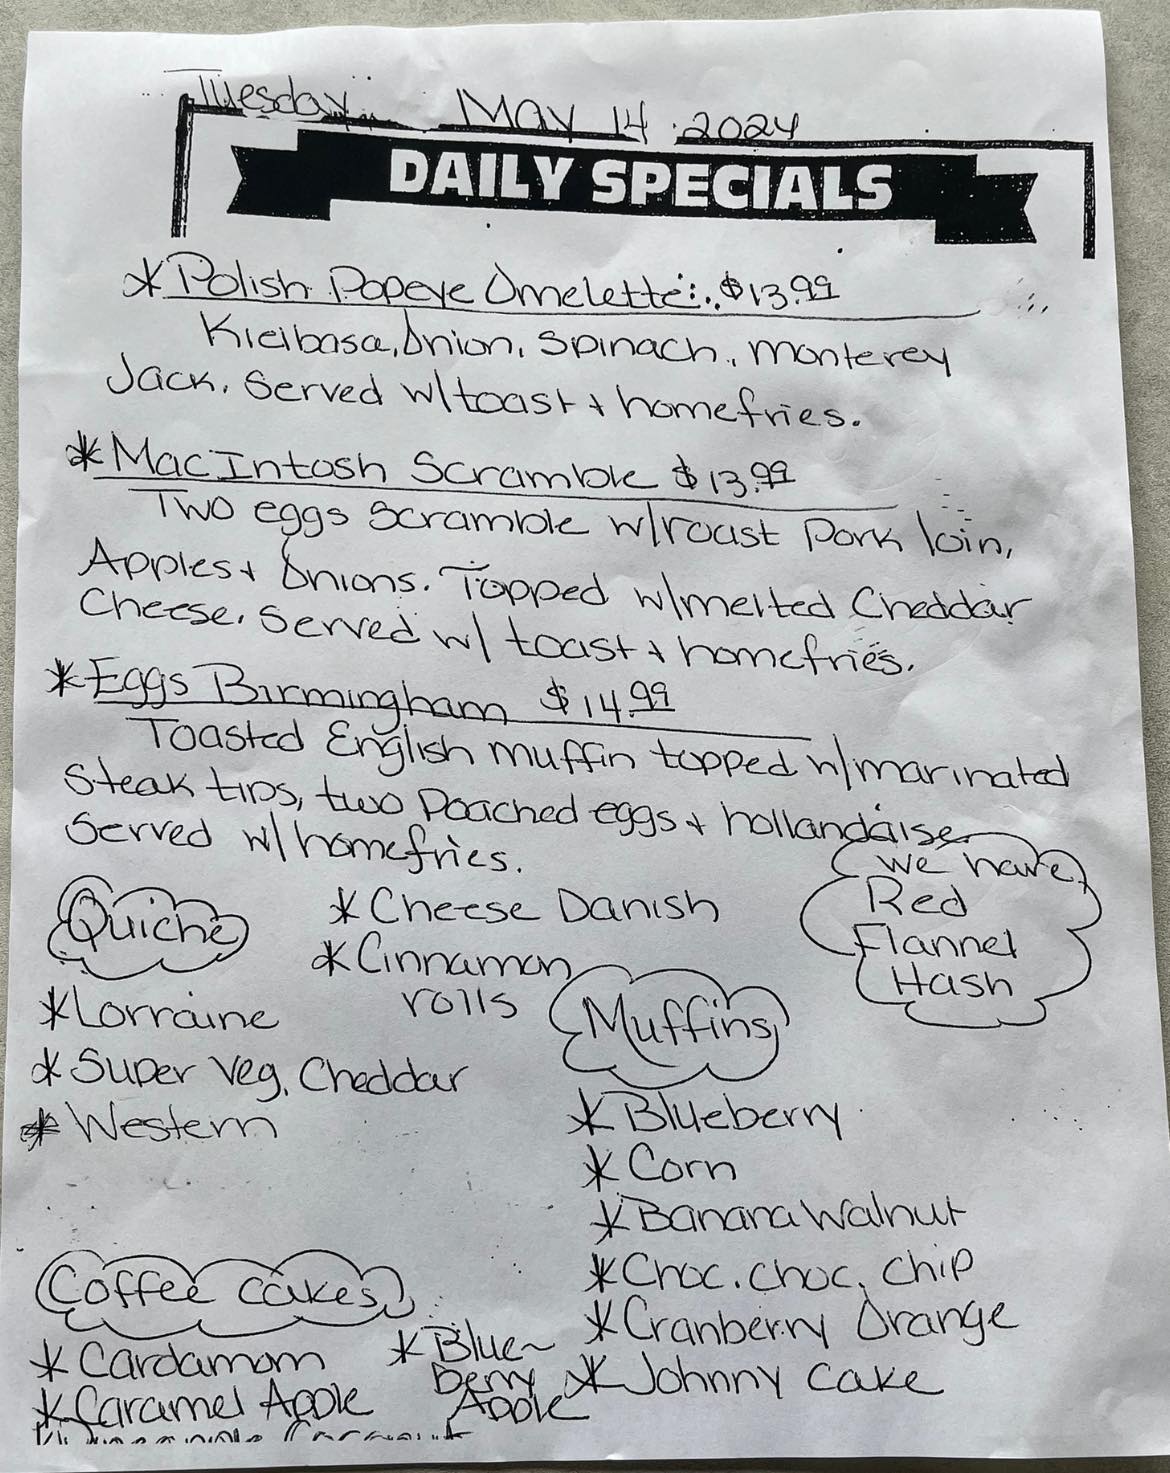 Tuesday May 14 2024
DAILY SPECIALS
* Polish Popeye Omelette: $13.99
Kielbasa, Onion, Spinach, Monterey
Jack. Served w/toast + homefries.
* MacIntosh Scramble $13.99
Two eggs scramble w/roast pork loin,
Apples + Onions. Topped w/melted Cheddar
Cheese. Served w/ toast + homefries.
* Eggs Birmingham $14.99
Toasted English muffin topped w/marinated
Steak tips, two poached eggs + hollandaise
Served w/homefries.
We have
Red
Flannel
Hash
Quiche
* Lorraine
* Super Veg. Cheddar
* Western
* Cheese Danish
* Cinnamon
rolls
Muffins
* Blueberry
* Corn
* Banana Walnut
* Choc. Choc. Chip
* Cranberry Orange
* Johnny Cake
Coffee Cakes
* Cardamom
* Caramel Apple
* Blue-
berry
Apple